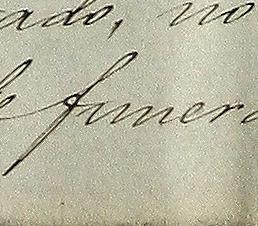 ado, no
le funera